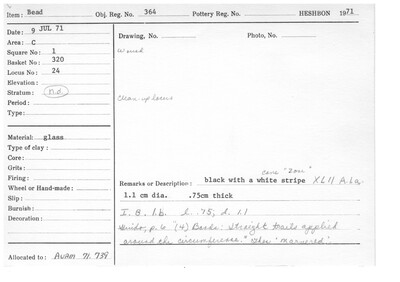 Item: Bead Obj. Reg. No. 364 Pottery Reg. No. HESHBON 1971
Date: 9 JUL 71
Drawing, No. Photo, No.
Area: C
Square No: 1
Basket No: 320
Locus No: 24
Elevation:
Stratum: n.d.
Clean-up locus
Period:
Type:
Material: glass
Type of clay:
Core:
Grits:
Firing:
Wheel or Hand-made:
Slip:
Burnish:
Decoration:
Remarks or Description: black with a white stripe XLII A.1.a
1.1 cm dia. .75cm thick
I. B. 1.b. L. .75; d. 1.1
Guido, p. 6 "(4) Beads: Straight trails applied
around the circumference." Then 'marvered'.
Allocated to: AUAM 71.739